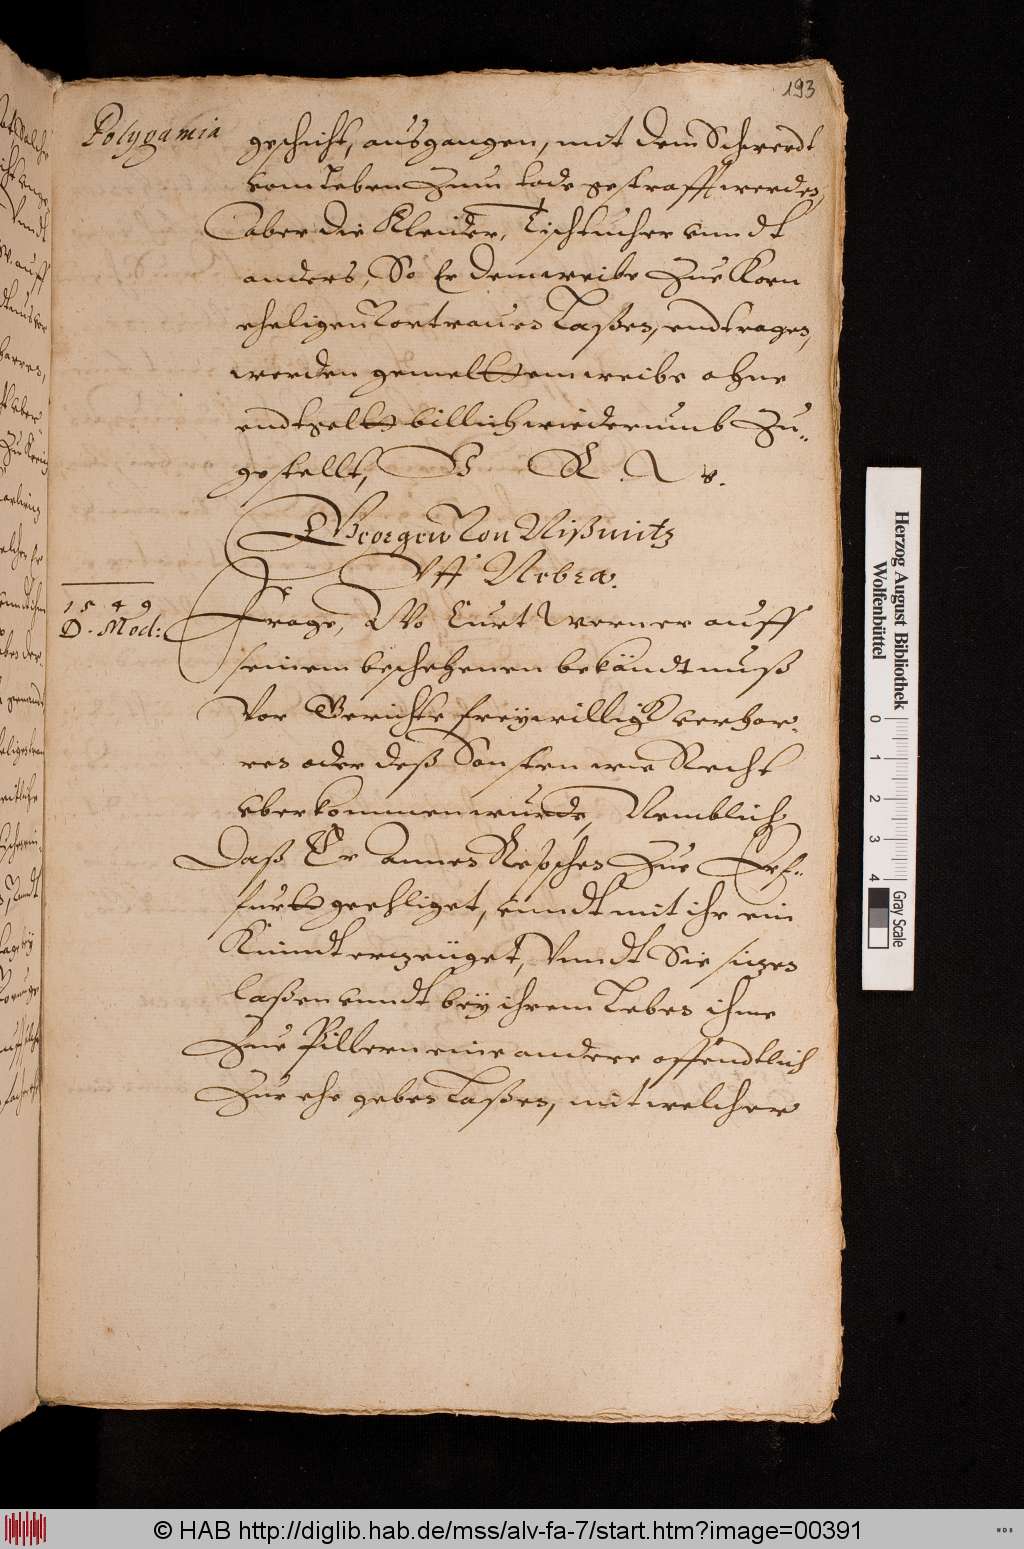 193
Polygamia
geschicht, ausgangen, mit dem Schwerdt
vom Leben Zum tode gestrafft werden,
aber die Kleider, Tischtücher vnndt
anders, So Er dem weibe Zue Korn
eheligen Vortrauen Laßen, endtragen,
werden gemeltem weibe ohne
endtgelt billich wiederumb Zu„
gestellt, V R W
Georgen Von Nißmitz
Vff Nebra.
1549
D. Mod:
Frage, Wo Curt Werner auff
seinem beschehenen bekändtnuß
Vor Gerichte freywillig verhar„
ren oder deß Sonsten wie Recht
vberkommen wurde, Nemblich
Daß Er Annen Zue Erf„
furt geehliget, vnndt mit ihr ein
Kinndt erzeüget, Vnndt Sie sitzen
laßen vnndt bey ihrem Leben ihme
Zue Pillern eine andere offendtlich
Zur ehe geben Laßen, mit welcher
Herzog August Bibliothek
Wolfenbüttel
0 1 2 3 4
Gray Scale
© HAB http://diglib.hab.de/mss/alv-fa-7/start.htm?image=00391